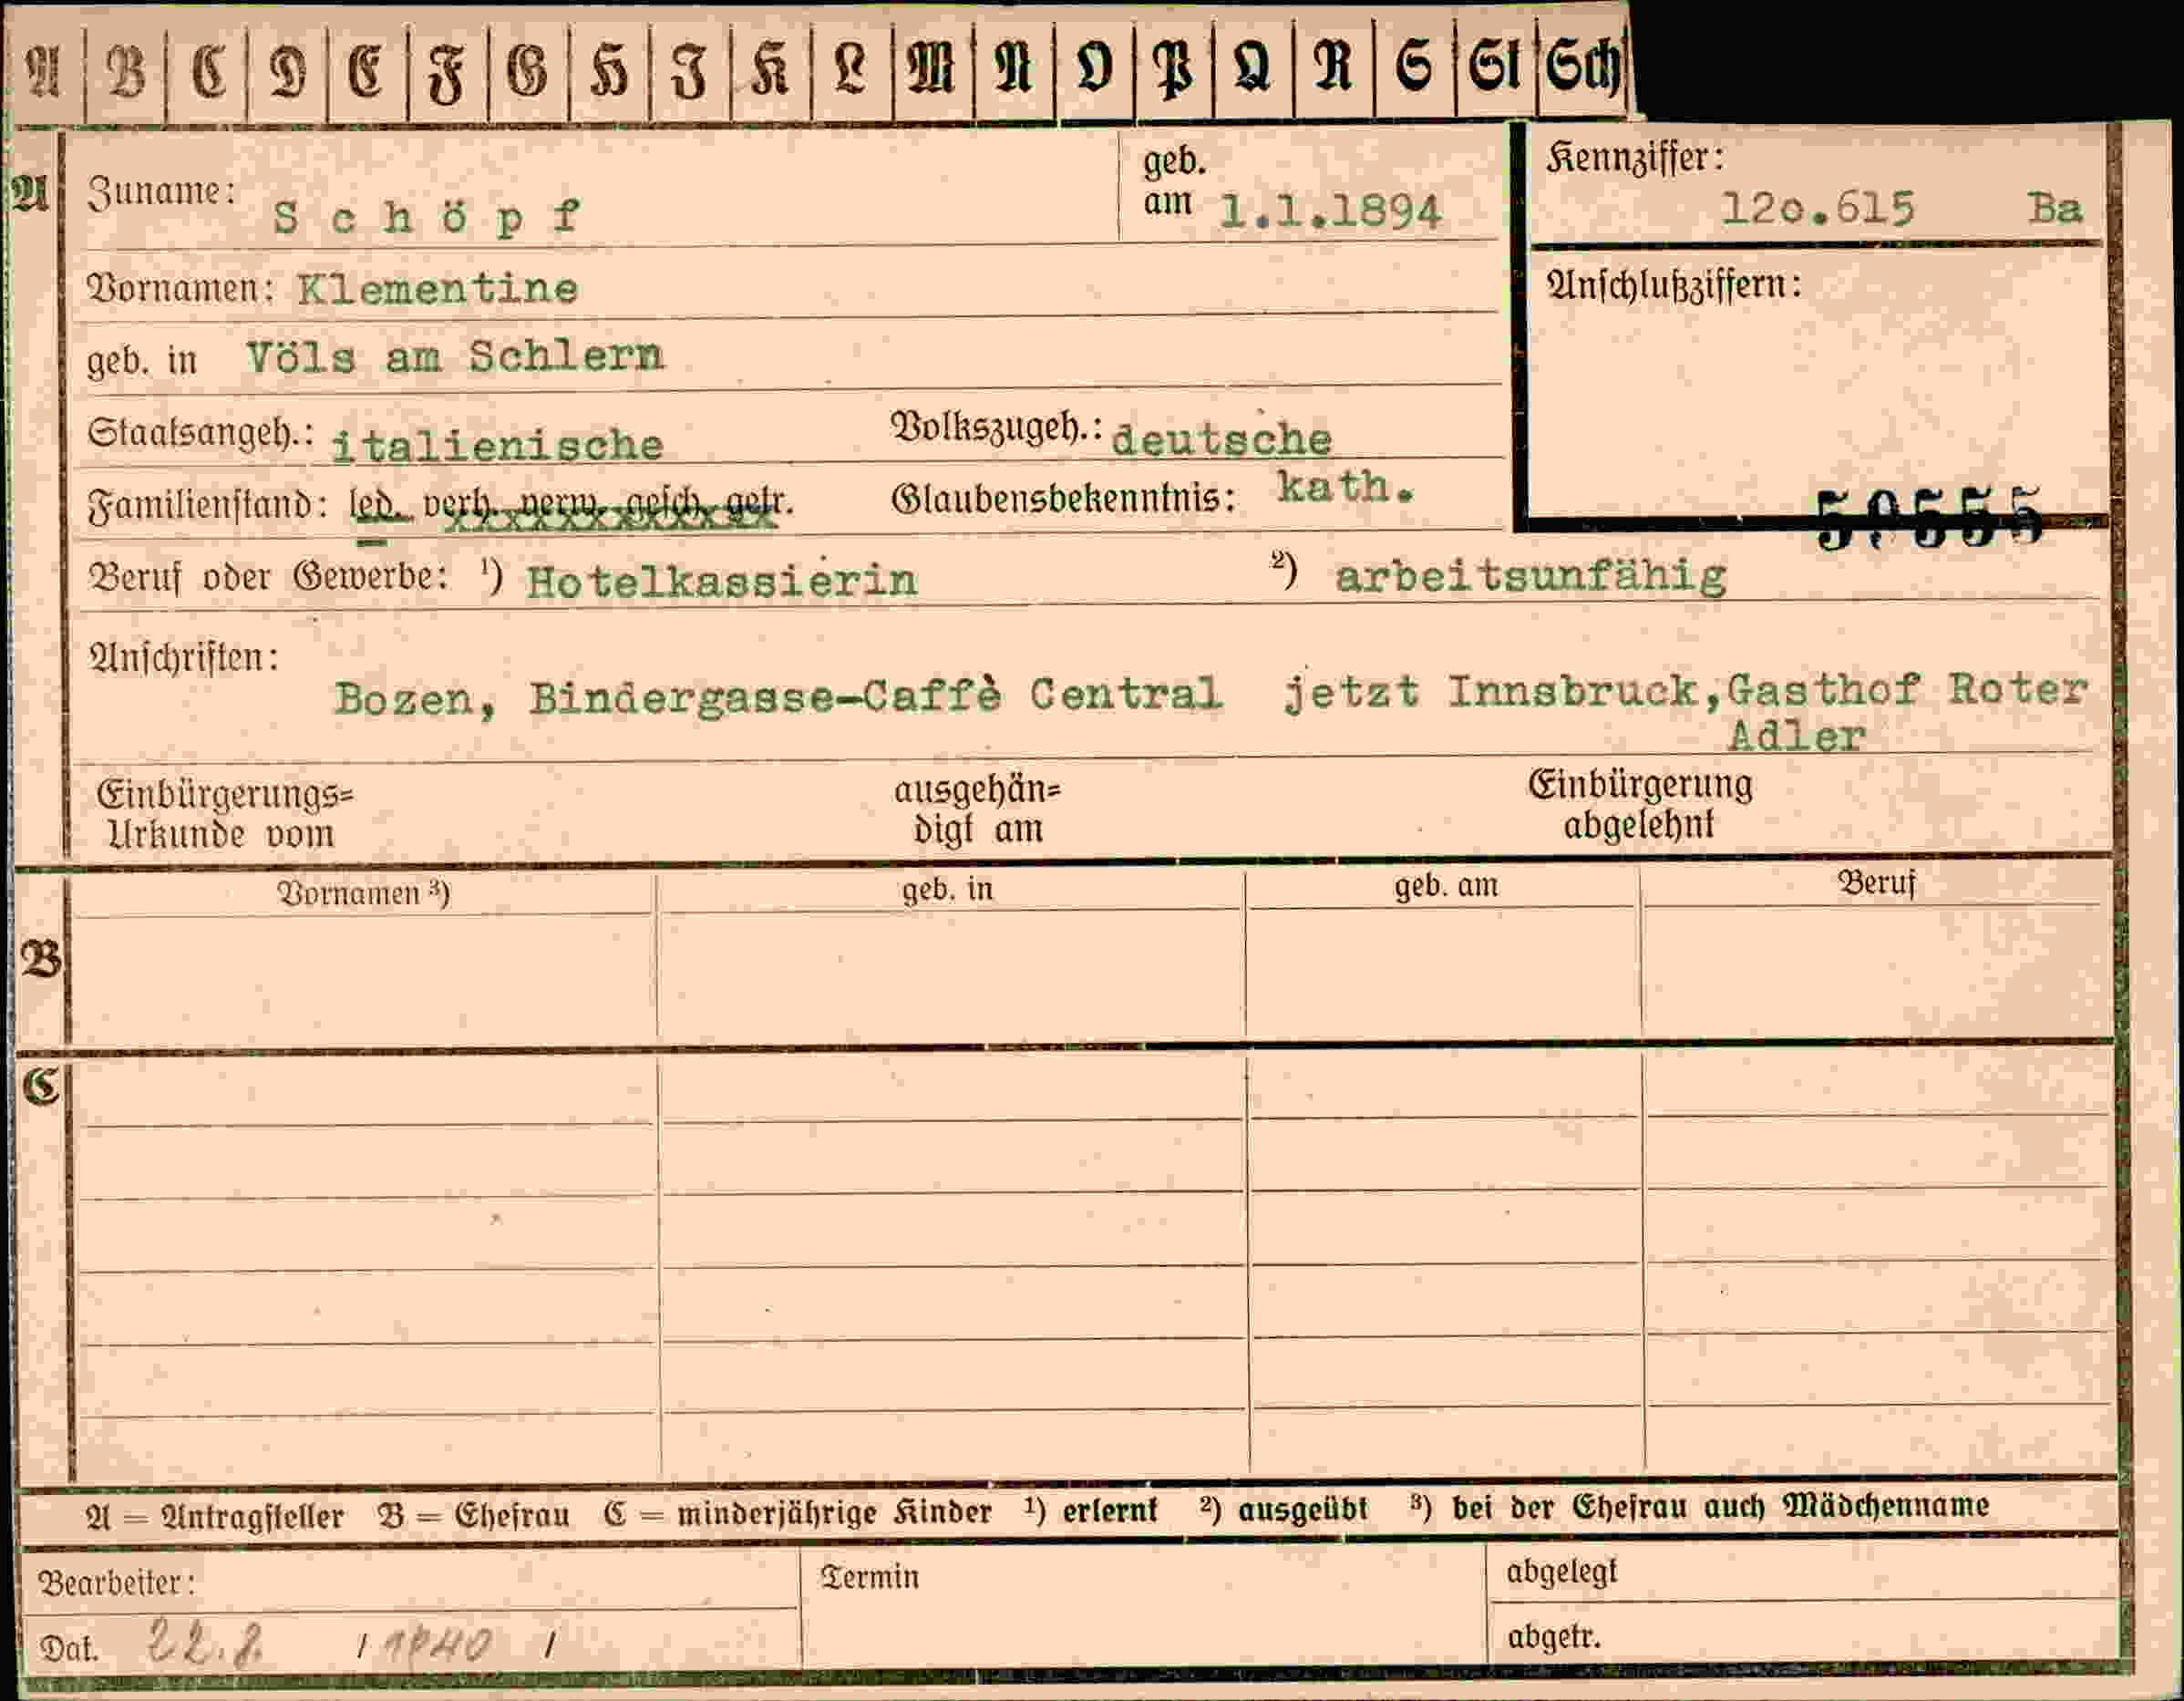 A B C D E F G H I K L M N O P Q R S St Sch
A
Zuname: Schöpf
geb. am 1.1.1894
Kennziffer: 12o.615 Ba
Vornamen: Klementine
Anschlußziffern:
geb. in Völs am Schlern
Staatsangeh.: italienische Volkszugeh.: deutsche
Familienstand: led. verh. verw. gesch. getr. Glaubensbekenntnis: kath.
Beruf oder Gewerbe: ¹) Hotelkassierin ²) arbeitsunfähig
Anschriften:
Bozen, Bindergasse-Caffè Central jetzt Innsbruck,Gasthof Roter
Adler
Einbürgerungs= ausgehän= Einbürgerung
Urkunde vom digt am abgelehnt
Vornamen ³) geb. in geb. am Beruf
B
C
A = Antragsteller B = Ehefrau C = minderjährige Kinder ¹) erlernt ²) ausgeübt ³) bei der Ehefrau auch Mädchenname
Bearbeiter: Termin abgelegt
Dat. 22.8. / 1940 / abgetr.